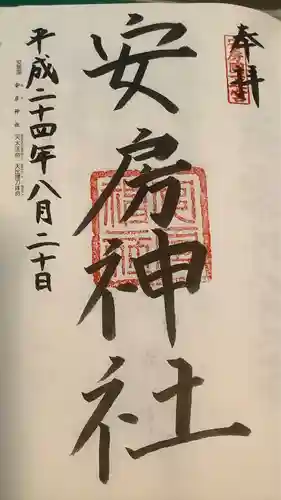 奉拝
安房神社
平成二十四年八月二十日